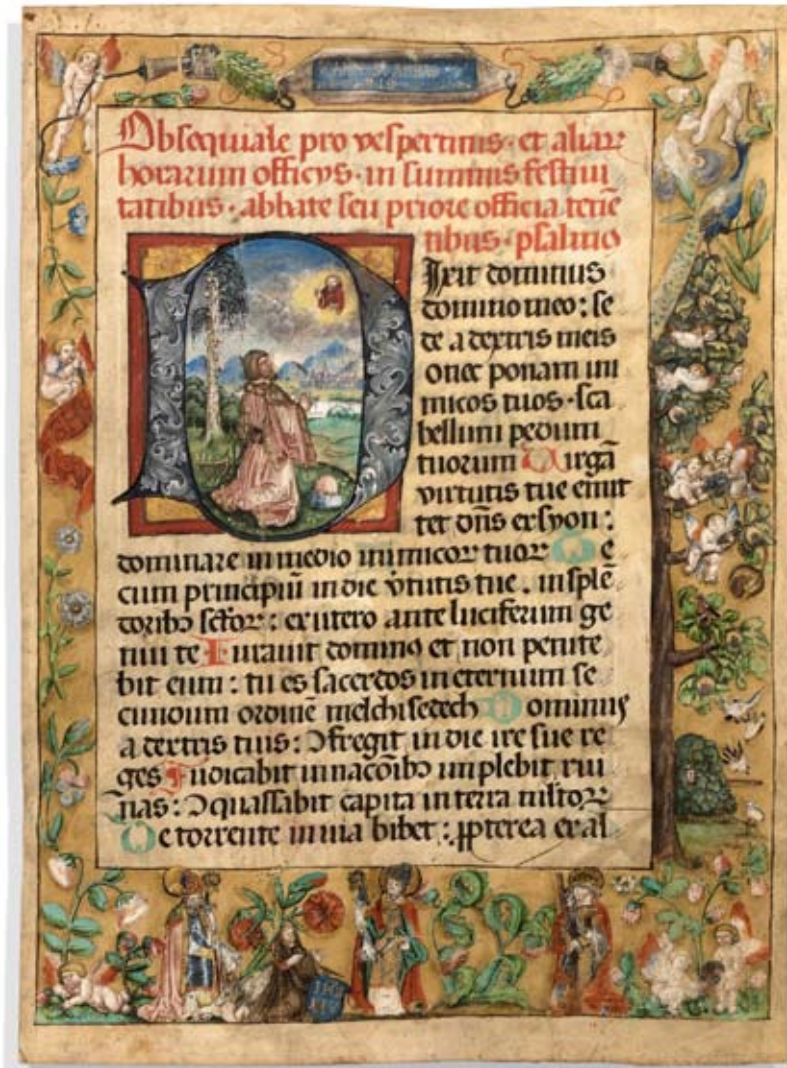 Obsequiale pro vespertinis · et aliaꝝ
horarum officijs · in summis festiui
tatibus · abbate seu priore officia tenē
tibus · psalmo
Dixit dominus
domino meo : se
de a dextris meis
onec ponam ini
micos tuos · sca
bellum pedum
tuorum Uirgā
virtutis tue emit
tet dn̄s ex syon :
dominare in medio inimicoꝝ tuoꝝ Te
cum principiū in die v̄tutis tue . in splē
doribꝫ sc̄toꝝ : ex utero ante luciferum ge
nui te Iurauit dominꝰ et non penite
bit eum : tu es sacerdos in eternum se
cundum ordinē melchisedech Dominus
a dextris tuis : ꝯfregit in die ire sue re
ges Iudicabit in nac̄oibꝫ implebit rui
nas : ꝯquassabit capita in terra ml̄toꝝ
De torrente in via bibet : ꝓpterea exal